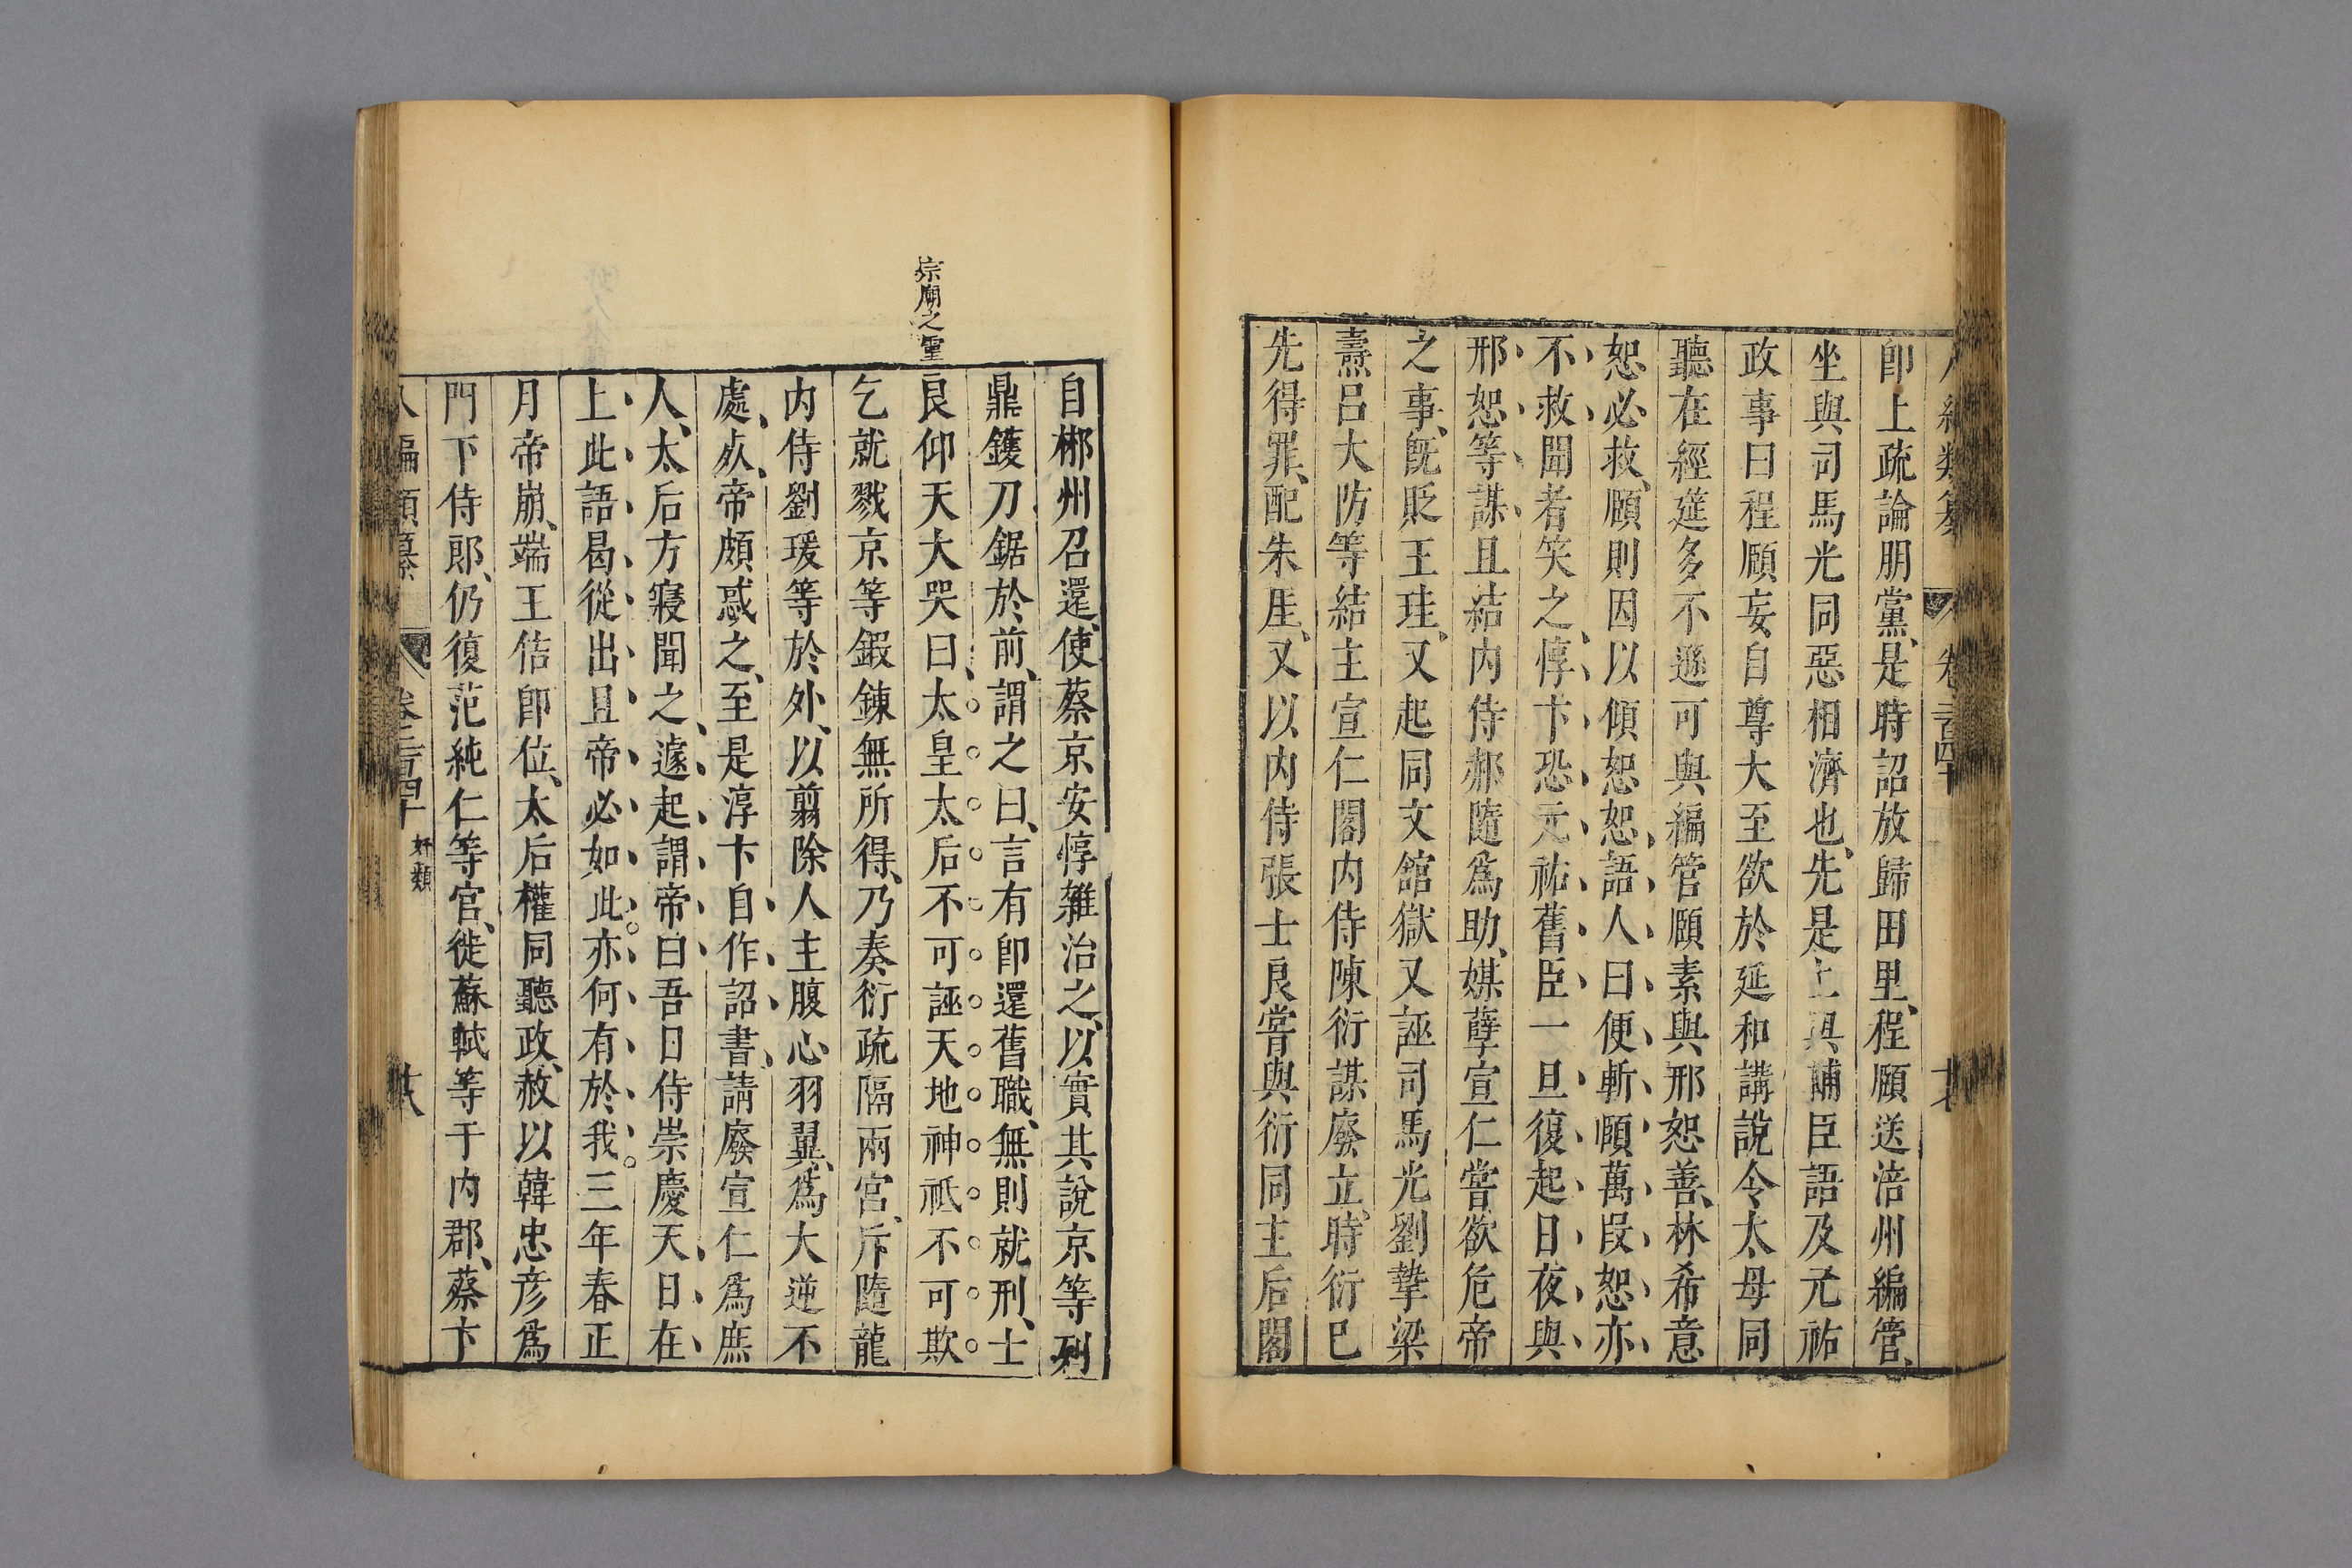 卽上疏論朋黨、是時詔放歸田里、程頤送涪州編管、
坐與司馬光同惡相濟也、先是上與輔臣語及元祐
政事曰程頤妄自尊大至欲於延和講說令太母同
聽在經筵多不遜可與編管頤素與邢恕善、林希意
恕必救、頤則因以傾恕恕、語人曰便斬頤萬段恕亦
不救聞者笑之、惇卞恐元祐舊臣一旦復起日夜與
邢恕等謀且結内侍郝隨爲助、媒孽宣仁嘗欲危帝
之事、旣貶王珪、又起同文館獄又誣司馬光劉摯梁
燾呂大防等結主宣仁閣内侍陳衍謀廢立、時衍巳
先得罪、配朱厓、又以内侍張士良嘗與衍同主后閣
宗廟之靈
自郴州召還、使蔡京安惇雜治之、以實其說京等列
鼎鑊刀鋸於前、謂之曰、言有卽還舊職、無則就刑、士
良仰天大哭曰、太皇太后不可誣天地神祇不可欺
乞就戮京等鍜鍊無所得、乃奏衍疏隔兩宮、斥隨龍
内侍劉瑗等於外、以翦除人主腹心羽翼、爲大逆不
處、㱙、帝頗惑之、至是淳卞自作詔書、請廢宣仁爲庶
人、太后方寢聞之、遽起謂帝曰吾日侍崇慶天日在
上此語曷從出且帝必如此亦何有於我三年春正
月帝崩、端王佶卽位、太后權同聽政、赦以韓忠彦爲
門下侍郎、仍復范純仁等官、徙蘇軾等于内郡、蔡卞
八編類纂 卷二百四十 奸類